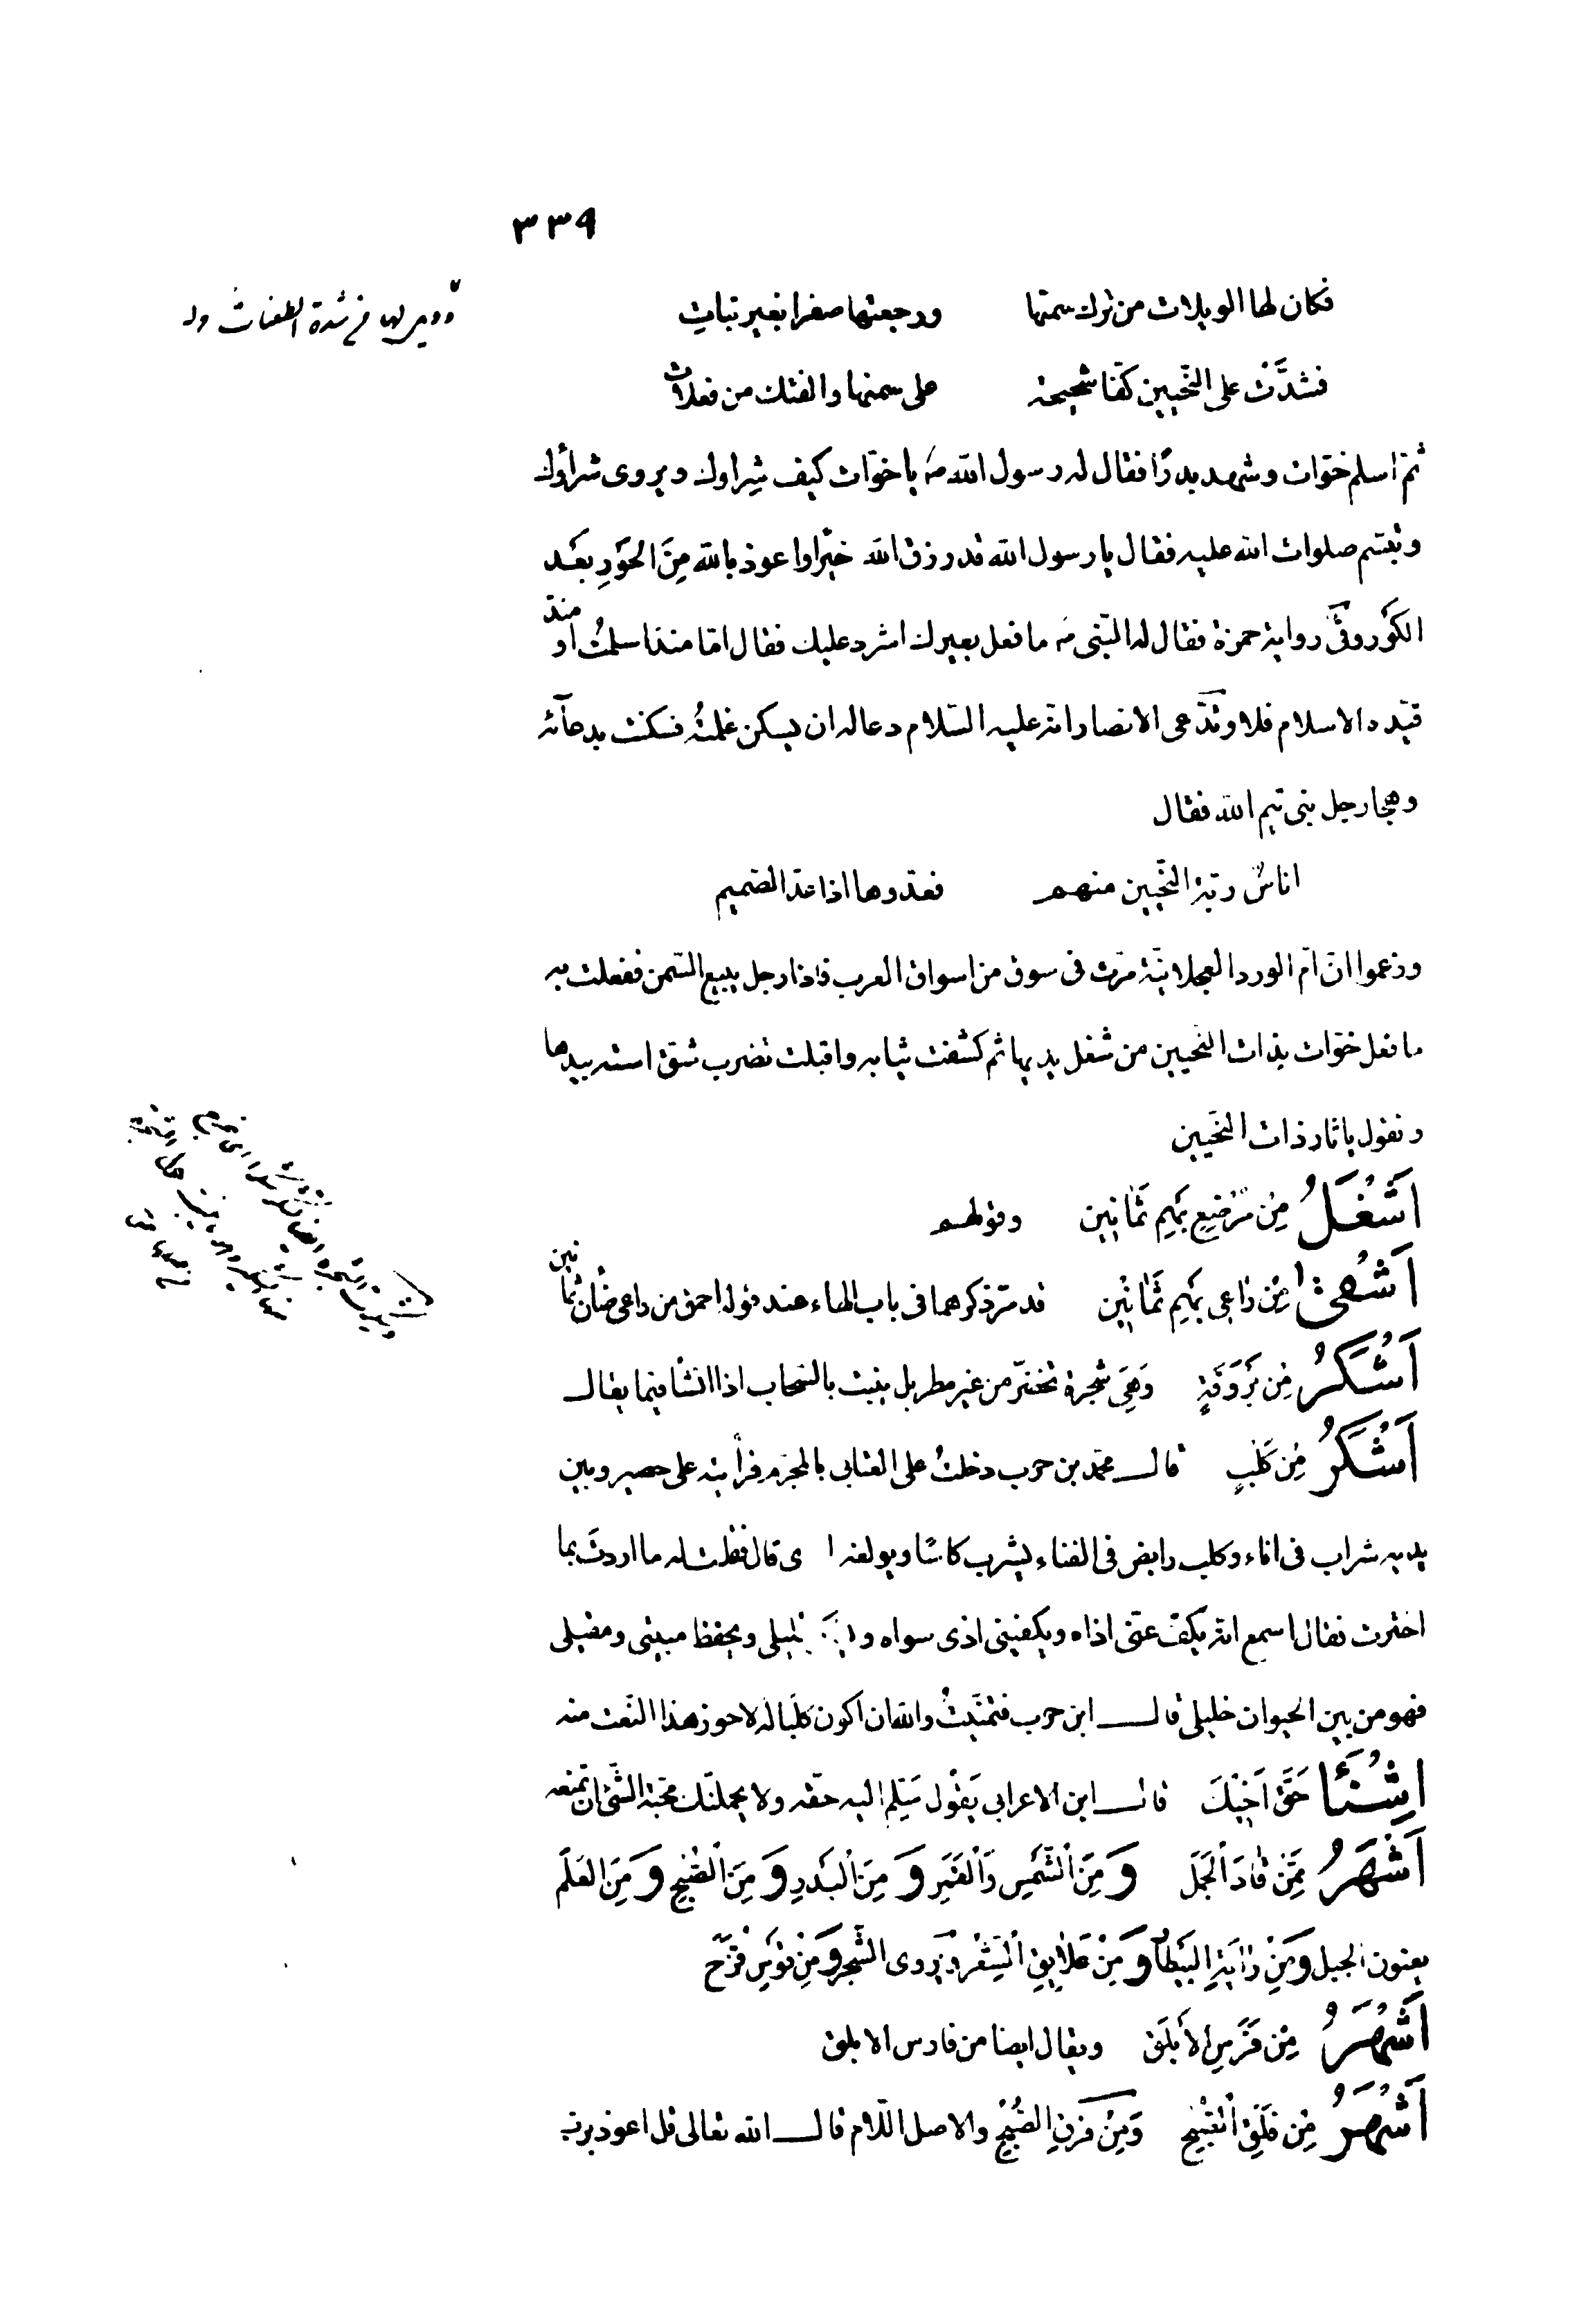 ٣٣٩
فكان لها الويلات من ترك سمنها ورجعتها صفرا بغير بتات
فشدَّت على النحيين كفّا شحيحة على سمنها والفتك من فعلات
ثم اسلم خوّات وشهد بدرًا فقال له رسول الله صم يا خوّات كيف شِراوك ويروى شرأوك
وتبسّم صلوات الله عليه فقال يا رسول الله قد رزق الله خيرا واعوذ بالله مِنَ الحَوْرِ بعَد
الكَوْر وفى رواية حمزة فقال له النّبى صم ما فعل بعيرك ايشرد عليك فقال امّا منذ اسلمتُ او منذ
قيّده الاسلام فلا وتدّعى الانصار انه عليه السّلام دعا له ان يسكن غلمتُه فسكنت بدعآئه
وهجا رجل بنى تيم الله فقال
اناسٌ ربّة النّحيين منهم فعدوها اذا عدّ الصّميم
وزعموا انّ امّ الورد العجلانيّة مرّت فى سوق من اسواق العرب فاذا رجل يبيع السّمن ففعلت به
ما فعل خوّات بذات النحيين من شغل يديها ثم كشفت ثيابه واقبلت تضرب شق استه بيدها
وتقول يا ثار ذات النحيين
اَشْغَلُ مِنْ مُرْضِعِ بَهْمٍ ثَمَانِين وقولهم
اَشْقى مِنْ رَاعِى بَهْمِ ثَمَانِيْن قد مرّ ذكرهما فى باب الحاء عند قوله احمق من راعى ضأن ثمانين
اَشْكَرُ مِن بَرْوَقَةٍ وَهِىَ شجرة تخضرّ من غير مطر بل ينبت بالسّحاب اذا انشأ فيما يقال
اَشْكَرُ مِن كَلْبٍ قال محمّد بن حرب دخلتُ على العتابى بالمخرّم فرأيته على حصير وبين
يديه شراب فى اناء وكلب رابض فى الفناء يشرب كاسًا ويولغه ا ى قال فقلت له ما اردتَ بما
اخترت فقال اسمع انه يكفّ عنّى اذاه ويكفينى اذى سواه و قليلى ويحفظ مبيتى ومقيلى
فهو من بين الحيوان خليلى قال ابن حرب فتمنّيتُ والله ان اكون كلبًا له لاحوز هذا النّعت منه
اِشْنَأْ حَقَّ اَخِيْكَ قال ابن الاعرابى يَقُول سَلِّم اليه حقّه ولا يحملنّك محبّة الشّئ ان تمنعه
اَشْهَرُ مِمَّنْ قَادَ الْجَمَلَ وَ مِنَ الشَّمْسِ وَالْقَمَرِ وَ مِنَ الْبَدْرِ وَ مِنَ الْصُّبْحِ وَ مِنَ الْعَلَمِ
يعنون الجبل وَمِنْ رَايَةِ البَيْطَار وَ مِنْ عَلَايِقِ الشَّعْر ويُروى الشّجر وَمِنْ قَوْسِ قُزَحَ
اَشْهَرُ مِنْ فَرَسِ الأَبْلَقِ ويقال ايضا من فارس الابلق
اَشْهَرُ مِن فَلَقِ الصُّبْحِ وَمِنْ فَرَقِ الصُّبْحِ والاصل اللّام قال الله تعالى قل اعوذ بربّ